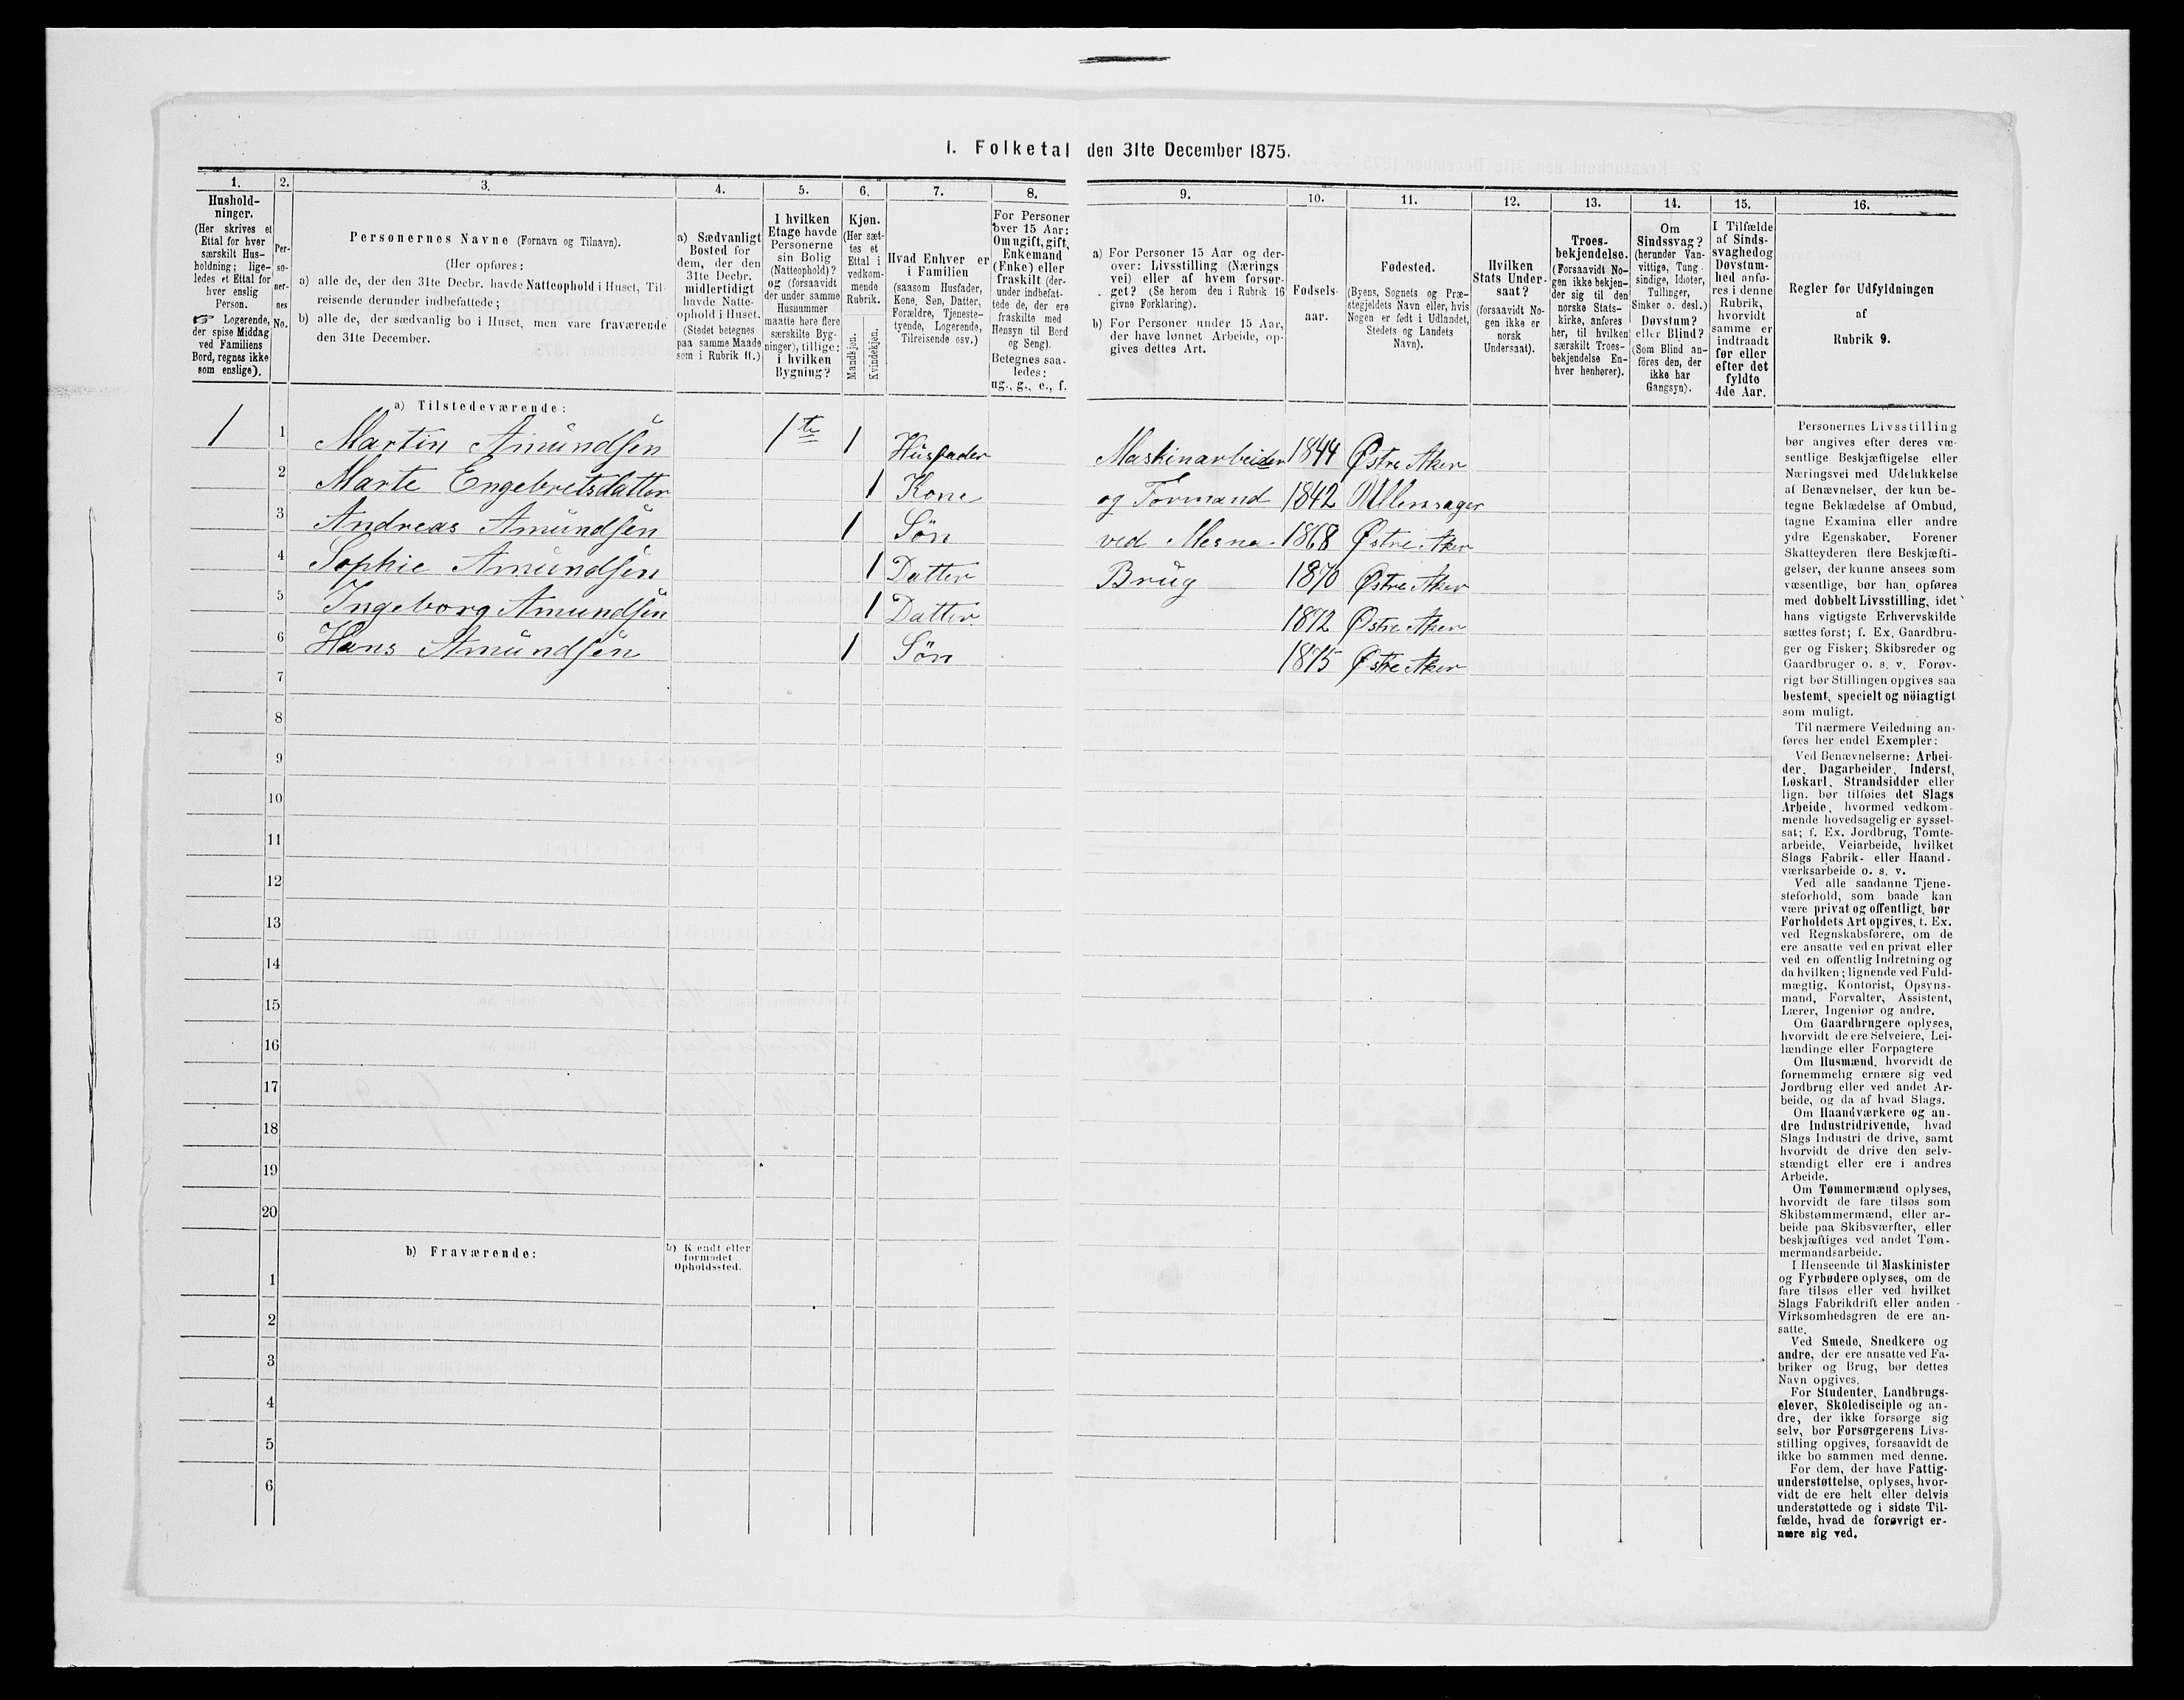 1. Folketal den 31te December 1875.
1.
Hushold-
ninger.
(Her skrives et
Ettal for hver
særskilt Hus-
holdning; lige-
ledes et Ettal for
hver enslig
Person.
☞ Logerende,
der spise Middag
ved Familiens
Bord, regnes ikke
som enslige).
2.
Per-
so-
ner-
nes
No.
3.
Personernes Navne (Fornavn og Tilnavn).
(Her opføres:
a) alle de, der den 31te Decbr. havde Natteophold i Huset, Til-
reisende derunder indbefattede;
b) alle de, der sædvanlig bo i Huset, men vare fraværende
den 31te December.
4.
a) Sædvanligt
Bosted for
dem, der den
31te Decbr.
midlertidigt
havde Natte-
ophold i Huset.
(Stedet betegnes
paa samme Maade
som i Rubrik 11.)
5.
I hvilken
Etage havde
Personerne
sin Bolig
(Natteophold)?
og (forsaavidt
der under samme
Husnummer
maatte høre flere
særskilte Byg-
ninger), tillige:
i hvilken
Bygning?
6.
Kjøn.
(Her sæt-
tes et
Ettal i
vedkom-
mende
Rubrik.
Mandkjøn.
Kvindekjøn.
7.
Hvad Enhver er
i Familien
(saasom Husfader,
Kone, Søn, Datter,
Forældre, Tjeneste-
tyende, Logerende,
Tilreisende osv.)
8.
For Personer
over 15 Aar:
Om ugift, gift,
Enkemand
(Enke) eller
fraskilt (der-
under indbefat-
tede de, der ere
fraskilte med
Hensyn til Bord
og Seng).
Betegnes saa-
ledes:
ug., g., e., f.
9.
a) For Personer 15 Aar og der-
over: Livsstilling (Nærings
vei) eller af hvem forsør-
get? (Se herom den i Rubrik 16
givne Forklaring).
b) For Personer under 15 Aar,
der have lønnet Arbeide, op-
gives dettes Art.
10.
Fødsels-
aar.
11.
Fødested.
(Byens, Sognets og Præ-
stegjeldets Navn eller, hvis
Nogen er født i Udlandet,
Stedets og Landets
Navn).
12.
Hvilken
Stats Under-
saat?
(forsaavidt No-
gen ikke er
norsk
Undersaat).
13.
Troes-
bekjendelse.
(Forsaavidt No-
gen ikke bekjen-
der sig til den
norske Stats-
kirke, anføres
her, til hvilken
særskilt Troes-
bekjendelse En-
hver henhører).
14.
Om
Sindssvag?
(herunder Van-
vittige, Tung
sindige, Idioter,
Tullinger,
Sinker o. desl.)
Døvstum?
eller Blind?
(Som Blind an-
föres den, der
ikke har
Gangsyn).
15.
I Tilfælde
af Sinds-
svaghed og
Døvstum-
hed anfø-
res i denne
Rubrik,
hvorvidt
samme er
indtraadt
før eller
efter det
fyldte
4de Aar.
16.
Regler for Udfyldningen
af
Rubrik 9.
a) Tilstedeværende:
1 1 Martin Amundsen 1te 1 Husfader Maskinarbeider 1844 Østre Aker
2 Marte Engebretsdatter 1 Kone og Formand 1842 Ullensager
3 Andreas Amundsen 1 Søn ved Mesna 1868 Østre Aker
4 Sophie Amundsen 1 Datter Brug 1870 Østre Aker
5 Ingeborg Amundsen 1 Datter 1872 Østre Aker
6 Hans Amundsen 1 Søn 1875 Østre Aker
7
8
9
10
11
12
13
14
15
16
17
18
19
20
b) Fraværende:
b) Kendt eller
formodet
Opholdssted.
1
2
3
4
5
6
Personernes Livsstilling
bør angives efter deres væ-
sentlige Beskjæftigelse eller
Næringsvei med Udelukkelse
af Benævnelser, der kun be-
tegne Beklædelse af Ombud,
tagne Examina eller andre
ydre Egenskaber. Forener
Skatteyderen flere Beskjæfti-
gelser, der kunne ansees som
væsentlige, bør han opføres
med dobbelt Livsstilling, idet
hans vigtigste Erhvervskilde
sættes først; f. Ex. Gaardbru-
ger og Fisker; Skibsreder og
Gaardbruger o. s. v. Forøv-
rigt bør Stillingen opgives saa
bestemt, specielt og nöiagtigt
som muligt.
Til nærmere Veiledning an-
føres her endel Exempler:
Ved Benævnelserne: Arbei-
der, Dagarbeider, Inderst,
Løskarl, Strandsidder eller
lign. bør tilføies det Slags
Arbeide, hvormed vedkom-
mende hovedsagelig er syssel-
sat; f. Ex. Jordbrug, Tomte-
arbeide, Veiarbeide, hvilket
Slags Fabrik- eller Haand-
værksarbeide o. s. v.
Ved alle saadanne Tjene-
steforhold, som baade kan
være privat og offentligt, bør
Forholdets Art opgives, t. Ex.
ved Regnskabsførere, om de
ere ansatte ved en privat eller
ved en offentlig Indretning og
da hvilken; lignende ved Fuld-
mægtig, Kontorist, Opsyns-
mand, Forvalter, Assistent,
Lærer, Ingeniør og andre.
Om Gaardbrugere oplyses,
hvorvidt de ere Selveiere, Lei-
lændinge eller Forpagtere
Om Husmænd, hvorvidt de
fornemmelig ernære sig ved
Jordbrug eller ved andet Ar-
beide, og da af hvad Slags.
Om Haandværkere og an-
dre Industridrivende, hvad
Slags Industri de drive, samt
hvorvidt de drive den selv-
stændigt eller ere i andres
Arbeide.
Om Tømmermænd oplyses,
hvorvidt de fare tilsøs som
Skibstømmermænd, eller ar-
beide paa Skibsværfter, eller
beskjæftiges ved andet Tøm-
mermandsarbeide.
I Henseende til Maskinister
og Fyrbødere oplyses, om de
fare tilsøs eller ved hvilket
Slags Fabrikdrift eller anden
Virksomhedsgren de ere an-
satte.
Ved Smede, Snedkere og
andre, der ere ansatte ved Fa-
briker og Brug, bør dettes
Navn opgives.
For Studenter, Landbrugs-
elever, Skoledisciple og an-
dre, der ikke forsørge sig
selv, bør Forsørgerens Livs-
stilling opgives, forsaavidt de
ikke bo sammen med denne.
For dem, der have Fattig-
understøttelse, oplyses, hvor-
vidt de ere helt eller delvis
understøttede og i sidste Til-
fælde, hvad de forøvrigt er-
nære sig ved.